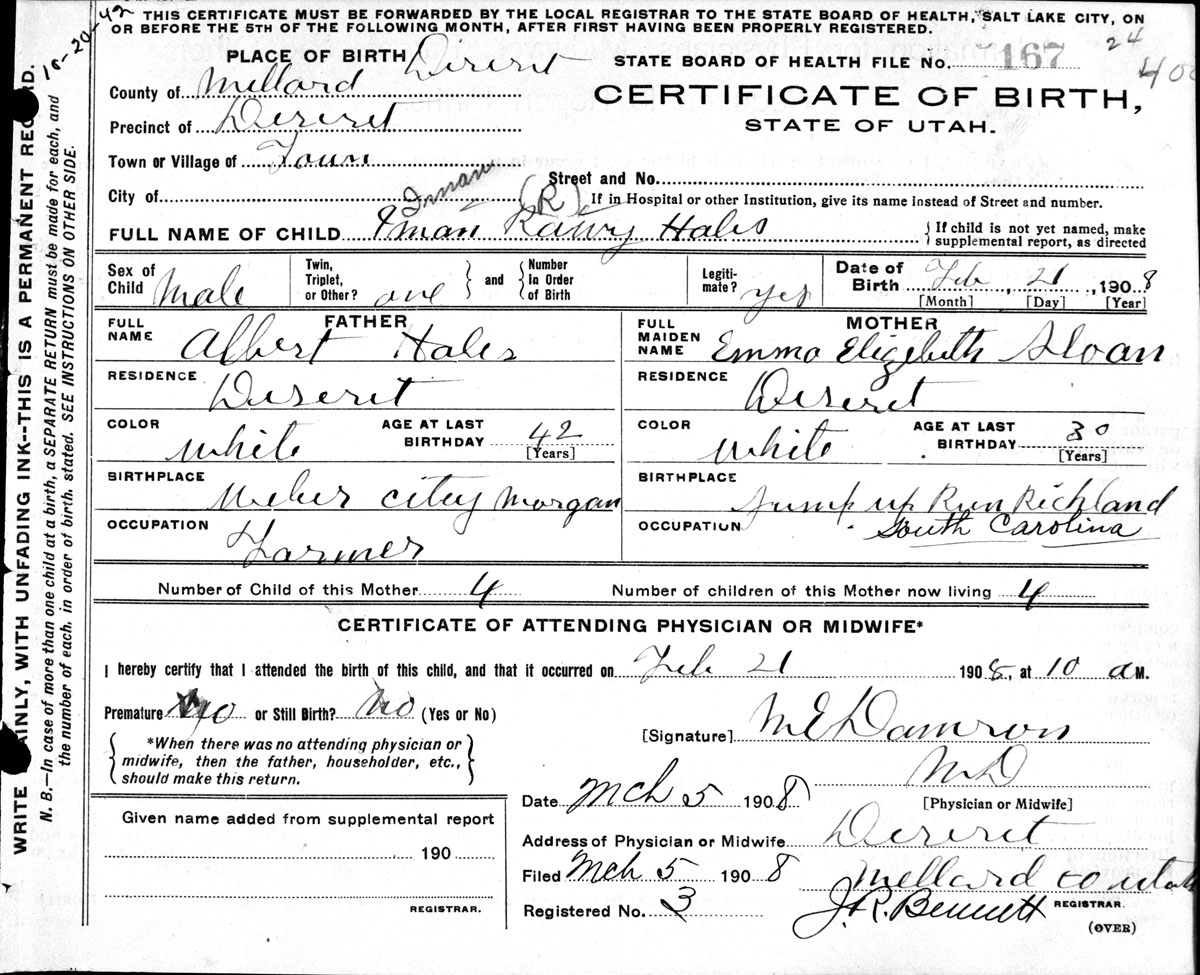 THIS CERTIFICATE MUST BE FORWARDED BY THE LOCAL REGISTRAR TO THE STATE BOARD OF HEALTH, SALT LAKE CITY, ON
OR BEFORE THE 5TH OF THE FOLLOWING MONTH, AFTER FIRST HAVING BEEN PROPERLY REGISTERED.
10-20-42
24
400
PLACE OF BIRTH Deseret
STATE BOARD OF HEALTH FILE No. 167
County of Millard
CERTIFICATE OF BIRTH,
Precinct of Deseret
STATE OF UTAH.
Town or Village of Town
Street and No.
City of
If in Hospital or other Institution, give its name instead of Street and number.
Inman (R)
FULL NAME OF CHILD Hales
If child is not yet named, make
supplemental report, as directed
Sex of Child Male
Twin, Triplet, or Other? one
and Number in Order of Birth
Legitimate? yes
Date of Birth Feb, 21, 1908
[Month] [Day] [Year]
FATHER
FULL NAME Albert Hales
RESIDENCE Deseret
COLOR White
AGE AT LAST BIRTHDAY 42
[Years]
BIRTHPLACE Weber citey Morgan
OCCUPATION Farmer
MOTHER
FULL MAIDEN NAME Emma Elizebeth Sloan
RESIDENCE Deseret
COLOR White
AGE AT LAST BIRTHDAY 30
[Years]
BIRTHPLACE Jump up Run Richland
South Carolina
OCCUPATION
Number of Child of this Mother 4
Number of children of this Mother now living 4
CERTIFICATE OF ATTENDING PHYSICIAN OR MIDWIFE*
I hereby certify that I attended the birth of this child, and that it occurred on Feb 21 1908, at 10 a M.
Premature No or Still Birth? No (Yes or No)
*When there was no attending physician or
midwife, then the father, householder, etc.,
should make this return.
[Signature] M E Damron
M D
[Physician or Midwife]
Date Mch 5 1908
Address of Physician or Midwife Deseret
Filed Mch 5 1908
Millard co utah
Registered No. 3
J. R. Bennett REGISTRAR.
(OVER)
Given name added from supplemental report
190
REGISTRAR.
WRITE PLAINLY, WITH UNFADING INK--THIS IS A PERMANENT RECORD.
N. B.—In case of more than one child at a birth, a SEPARATE RETURN must be made for each, and
the number of each, in order of birth, stated. SEE INSTRUCTIONS ON OTHER SIDE.